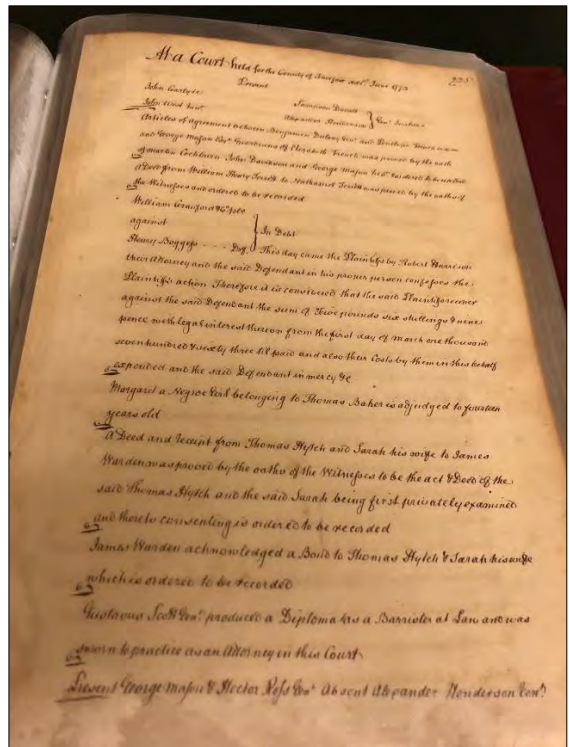 At a Court held for the County of Fairfax 21st June 1773
225
Present
John Carlyle
Alexander Henderson } Gent Justices
John West Junr
Articles of agreement between Benjamin Dulany Gent and Penelope
and George Mason Esqr Guardians of Elizabeth French was proved by the oath
of Martin Cockburn John Davidson and George Mason Junr ordered to be recorded
A Deed from William Henry Terrett to Nathaniel Terrett was proved by the oaths of
the Witnesses and ordered to be recorded
William Crawford & Co plts
against } In Debt
Henry Boggess Deft This day came the Plaintifs by Robert Harrison
their Attorney and the said Defendant in his proper person confesses the
Plaintifs action Therefore it is considered that the said Plaintifs recover
against the said Defendant the sum of pounds six shillings & nine
pence with legal interest thereon from the first day of March one thousand
seven hundred & sixty three til paid and also their Costs by them in this behalf
expended and the said Defendant in mercy &c
Margaret a Negroe Girl belonging to Thomas Baker is adjudged to fourteen
years old
A Deed and receipt from Thomas Hytch and Sarah his wife to James
Warden was proved by the oaths of the Witnesses to be the act & Deed of the
said Thomas Hytch and the said Sarah being first privately examined
and thereto consenting is ordered to be recorded
James Warden acknowledged a Bond to Thomas Hytch & Sarah his wife
which is ordered to be recorded
Gustavus Scott Gent produced a Diploma as a Barrister at Law and was
sworn to practice as an Attorney in this Court
Present George Mason & Hector Ross Gent Absent Alexander Henderson Gent